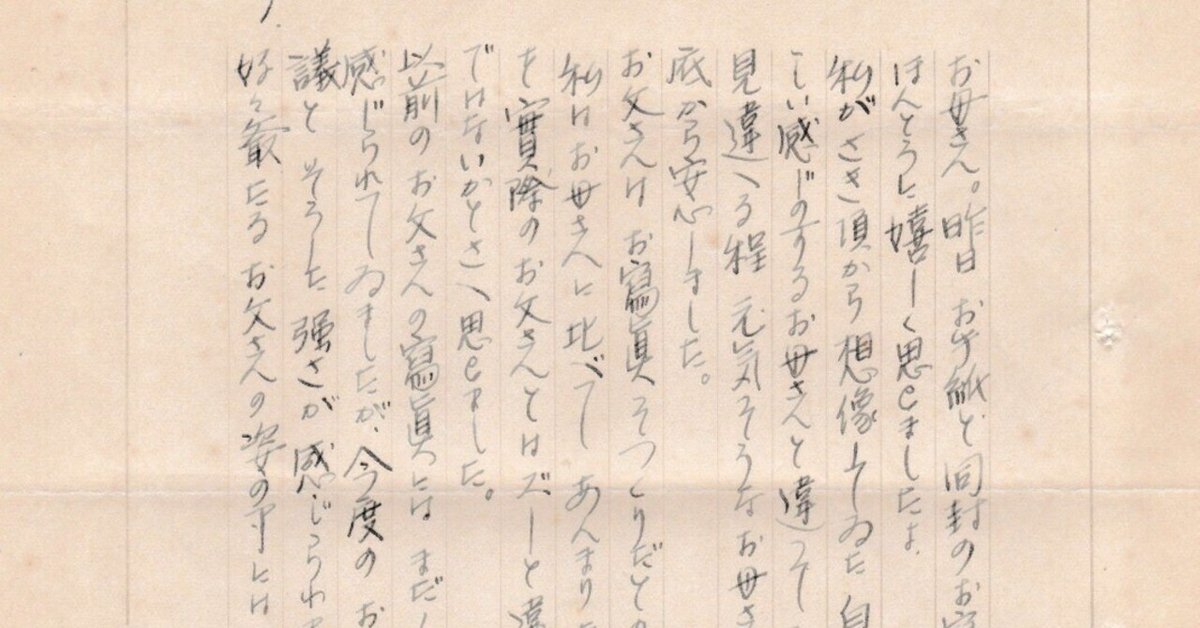 お母さん。昨日 お手紙と同封のお
ほんとうに嬉しく思ひましたよ
私がさき頃から想像してゐた
しい感じのするお母さんと違つて
見違へる程 元気そうなお母さ
底から安心しました。
お父さんは お寫眞そつくりだとの
私はお母さんに比べて あんまり
を實際のお父さんとはズーと違
ではないかとさへ思ひました。
以前のお父さんの寫眞には まだ
感じられてゐましたが、今度の お
議と そうした 強さが 感じられ
好々爺たるお父さんの姿の中には